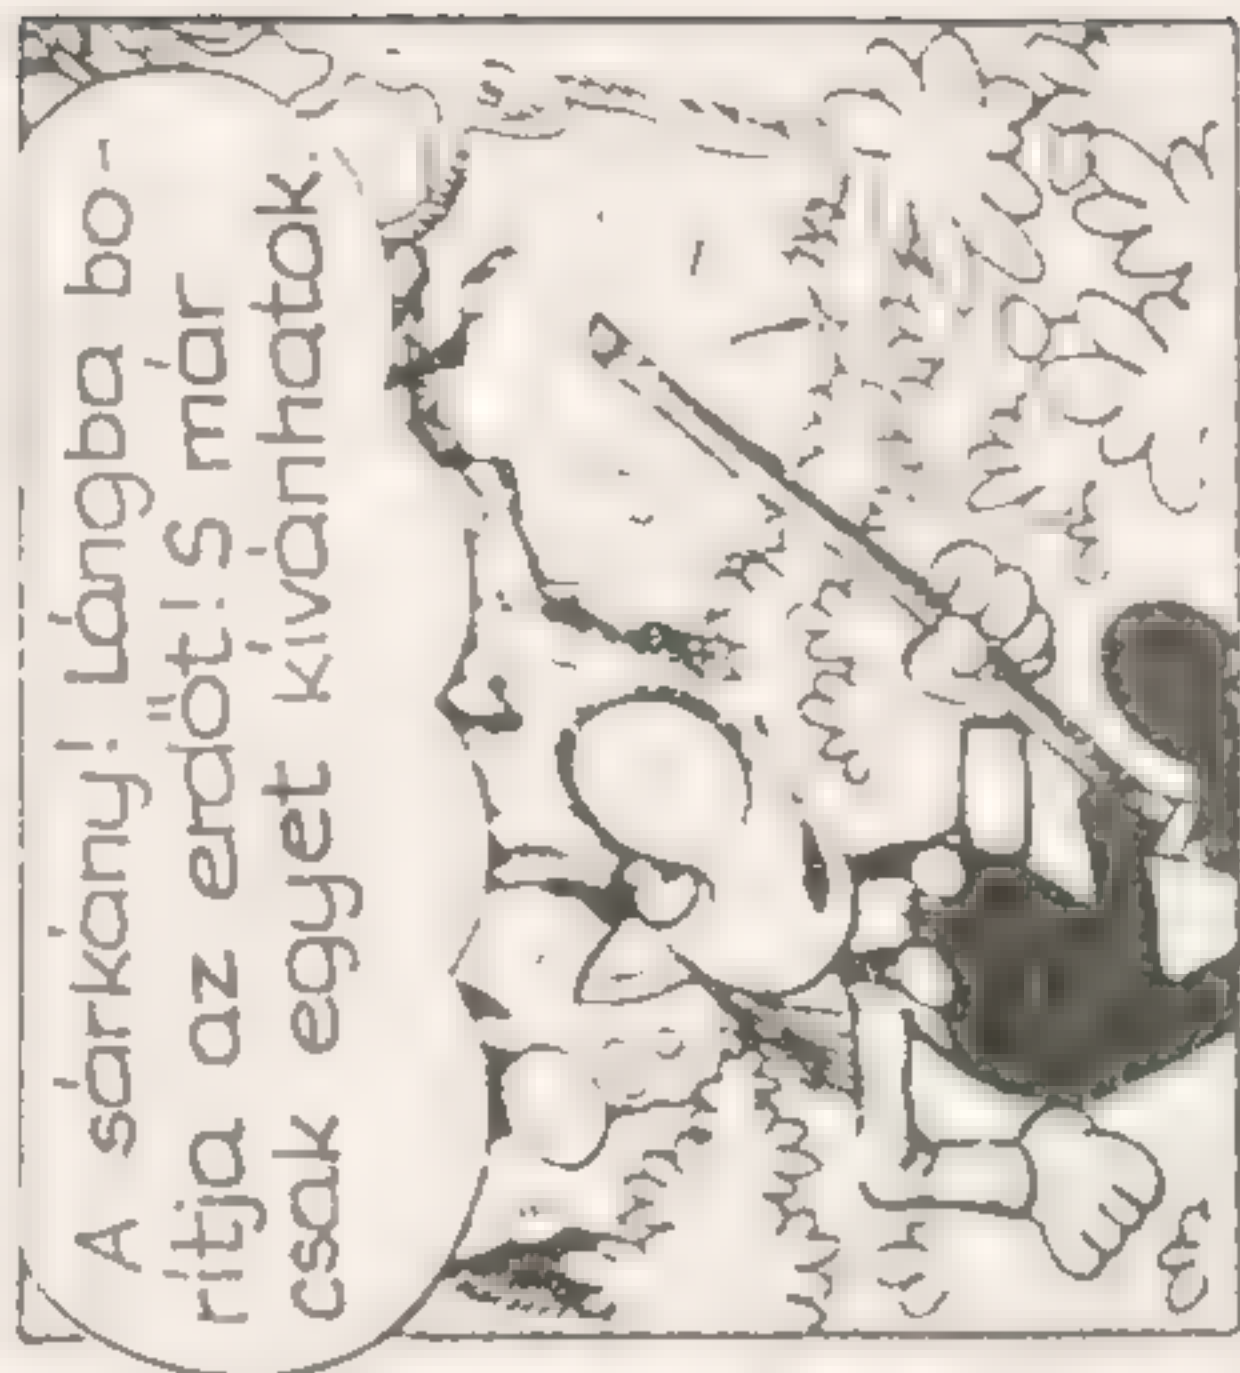 A sárkány! Lángba bo-
rítja az erdőt! S már
csak egyet kívánhatok.